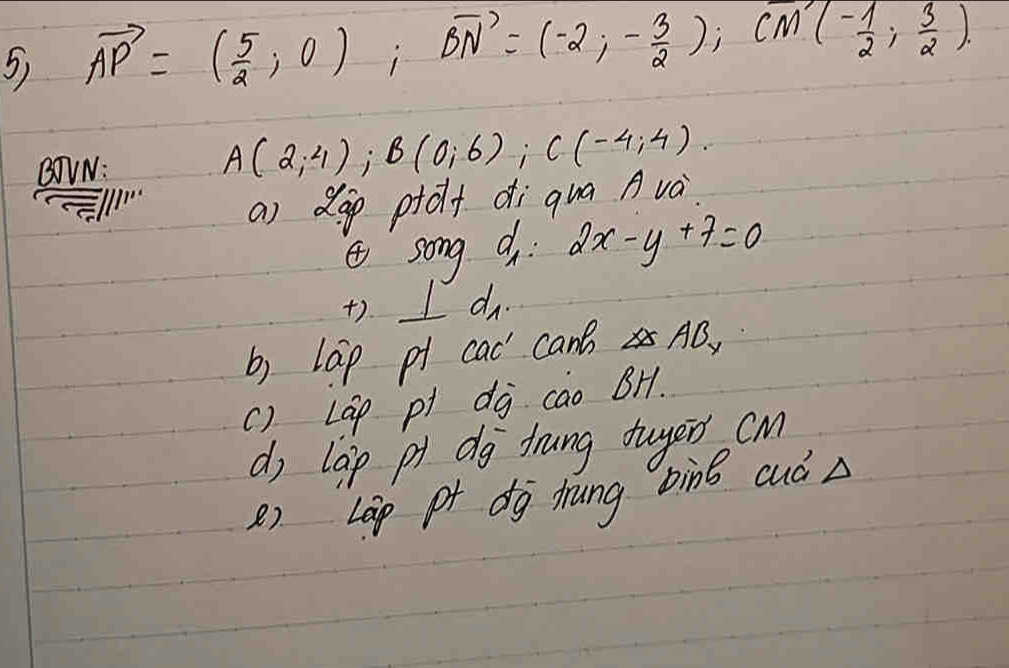 5) AP⃗ = (5/2; 0) ; BN⃗ = (-2; -3/2); CM⃗ (-1/2; 3/2).
BTVN: A(2;4); B(0;6); C(-4;4).
a) Lập ptđt đi qua A và.
⊕ song d₁: 2x - y + 7 = 0
+). ⊥ d₁.
b) lập pt các cạnh AB
c) Lập pt đg cao BH.
d) lập pt đg trung tuyến CM
e) Lập pt đg trung bình của Δ